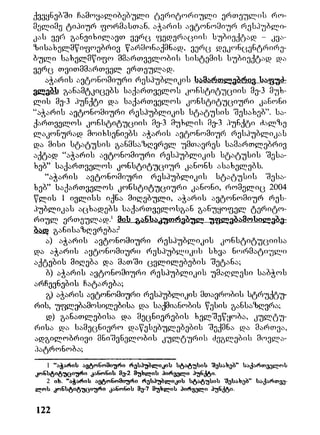 ქვეყნებში ჩამოყალიბებული ტერიტორიული ერთეულის რო-
მელიმე ტიპიურ ფორმასთან. აჭარის ავტონომიურ რესპუბლი-
კას ვერ განვიხილავთ ვერც ფედერაციის სუბიექტად – კვა-
ზისახელმწიფოებრივ წარმონაქმნად, ვერც დეკონცენტრირე-
ბული სახელმწიფო მმართველობის სისტემის სუბიექტად და
ვერც თვითმმართველ ერთეულად.
აჭარის ავტონომიური რესპუბლიკის სამართლებრივ საფუძ-
ვლებს განამტკიცებს საქართველოს კონსტიტუციის მე-3 მუხ-
ლის მე-3 პუნქტი და საქართველოს კონსტიტუციური კანონი
“აჭარის ავტონომიური რესპუბლიკის სტატუსის შესახებ”. სა-
ქართველოს კონსტიტუციის მე-3 მუხლის მე-3 პუნქტი ძალზე
ლაკონურად მოიხსენიებს აჭარის ავტონომიურ რესპუბლიკას
და მისი სტატუსის განმსაზღვრელ უმთავრეს სამართლებრივ
აქტად “აჭარის ავტონომიური რესპუბლიკის სტატუსის შესა-
ხებ” საქართველოს კონსტიტუციურ კანონს ასახელებს.
“აჭარის ავტონომიური რესპუბლიკის სტატუსის შესა-
ხებ” საქართველოს კონსტიტუციური კანონი, რომელიც 2004
წლის 1 ივლისს იქნა მიღებული, აჭარის ავტონომიურ რეს-
პუბლიკას აცხადებს საქართველოსგან განუყოფელ ტერიტო-
რიულ ერთეულად¹ მის განსაკუთრებულ უფლებამოსილება-
დად განისაზღვრება:²
ა) აჭარის ავტონომიური რესპუბლიკის კონსტიტუციისა
და აჭარის ავტონომიური რესპუბლიკის სხვა ნორმატიული
აქტების მიღება და მათში ცვლილებების შეტანა;
ბ) აჭარის ავტონომიური რესპუბლიკის უმაღლესი საბჭოს
არჩევნების ჩატარება;
გ) აჭარის ავტონომიური რესპუბლიკის მთავრობის სტრუქტუ-
რის, უფლებამოსილებისა და საქმიანობის წესის განსაზღვრა;
დ) განათლებისა და მეცნიერების ხელშეწყობა, კულტუ-
რისა და სამეცნიერო დაწესებულებების შექმნა და მართვა,
ადგილობრივი მნიშვნელობის კულტურის ძეგლების მოვლა-
პატრონობა;
1 “აჭარის ავტონომიური რესპუბლიკის სტატუსის შესახებ” საქართველოს
კონსტიტუციური კანონის მე-2 მუხლის პირველი პუნქტი.
2 იხ. “აჭარის ავტონომიური რესპუბლიკის სტატუსის შესახებ” საქართვე-
ლოს კონსტიტუციური კანონის მე-7 მუხლის პირველი პუნქტი.
122